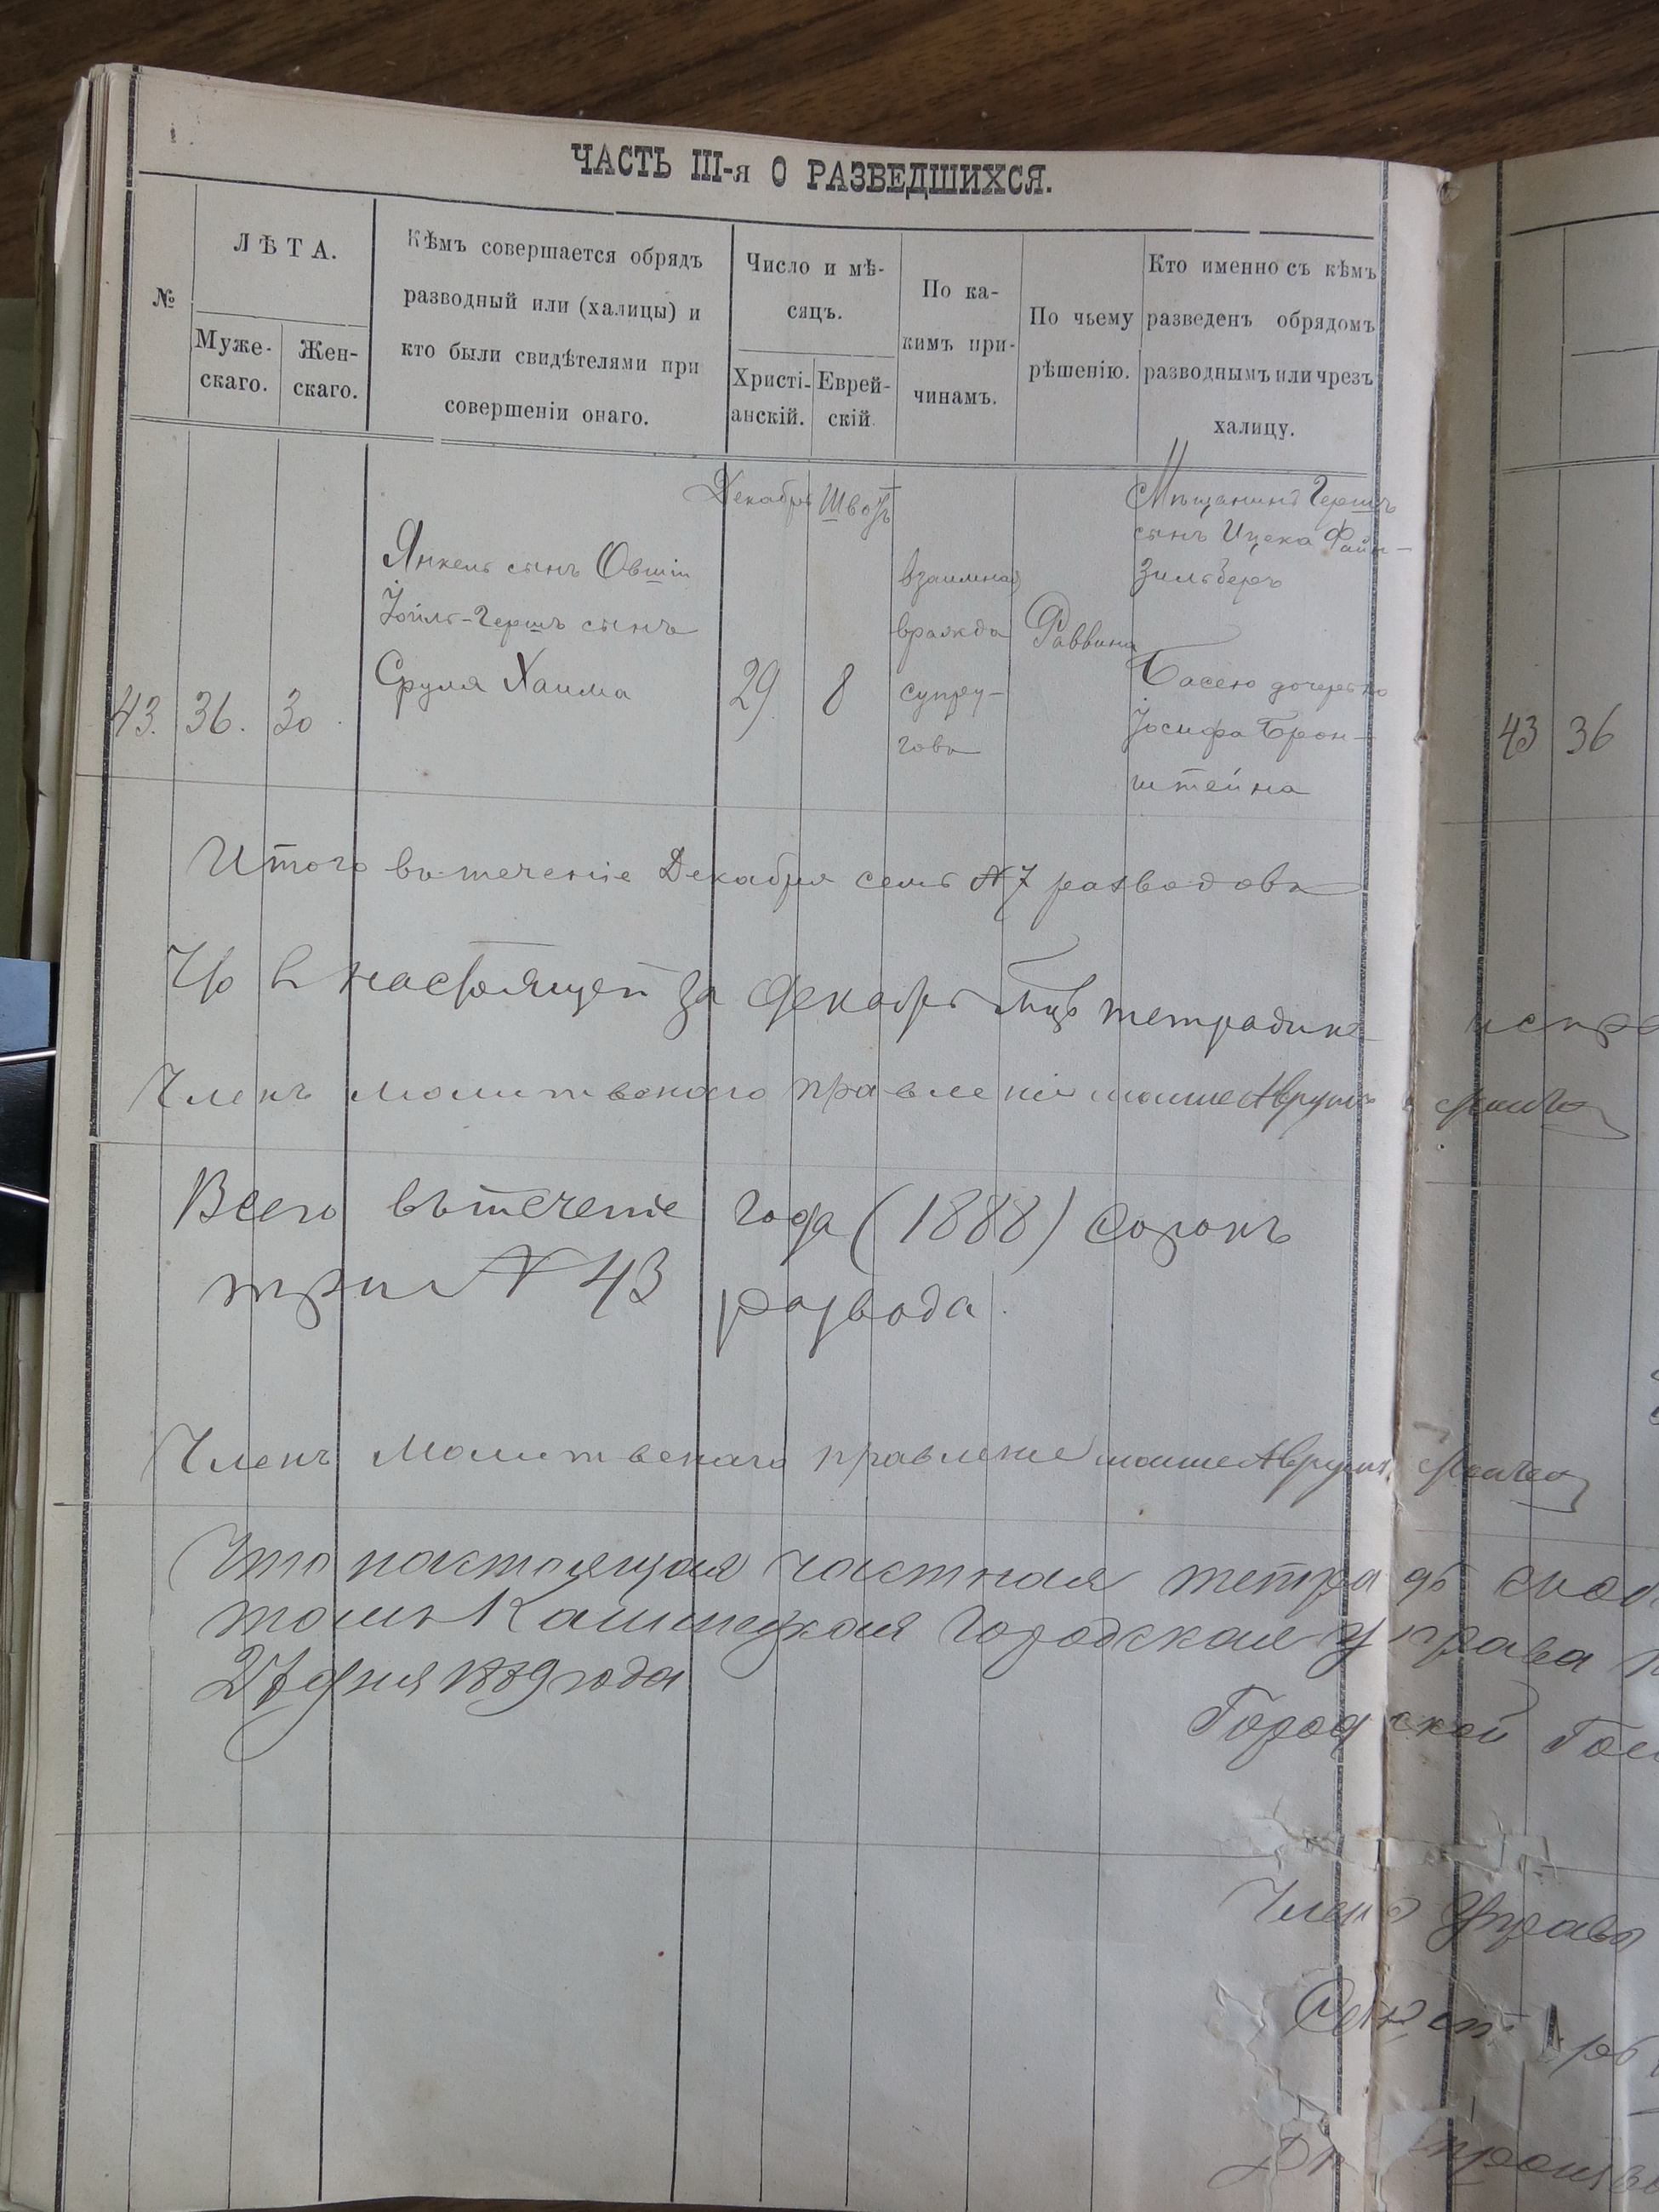 ЧАСТЬ III-я О РАЗВЕДШИХСЯ.
№
ЛѢТА.
Муже-
скаго.
Жен-
скаго.
Кѣмъ совершается обрядъ
разводный или (халицы) и
кто были свидѣтелями при
совершеніи онаго.
Число и мѣ-
сяцъ.
Христі-
анскій.
Еврей-
скій.
По ка-
кимъ при-
чинамъ.
По чьему
рѣшенію.
Кто именно съ кѣмъ
разведенъ обрядомъ
разводнымъ или чрезъ
халицу.
43. 36. 30
Янкель сынъ Овшіи
Іойль-Гершъ сынъ
Сруля Хаима
Декабрь
29
Швотъ
8
взаимная
вражда
супру-
говъ
Раввина
Мѣщанинъ Гершъ
сынъ Ицека Файн-
зильберъ
Басею дочерью
Іосифа Брон-
штейна
43 36
Итого въ теченіе Декабря семь № 7 разводовъ
Что в настоящей за Декабрь тетрадик
Членъ молитвенаго правленія мошко Аврумъ
Всего въ теченіе года (1888) сорокъ
три № 43 развода.
Членъ Молитвенаго правленія мошко Аврумъ
Что настоящая частная тетрадь
городская управа
27 дня 1889 года
Городской Гол
Членъ Управы